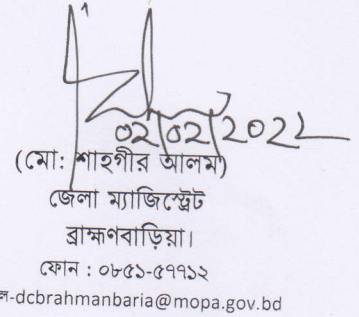 02/02/2022
(মো: শাহগীর আলম)
জেলা ম্যাজিস্ট্রেট
ব্রাহ্মণবাড়িয়া।
ফোন : ০৮৫১-৫৭৭১২
ল-dcbrahmanbaria@mopa.gov.bd